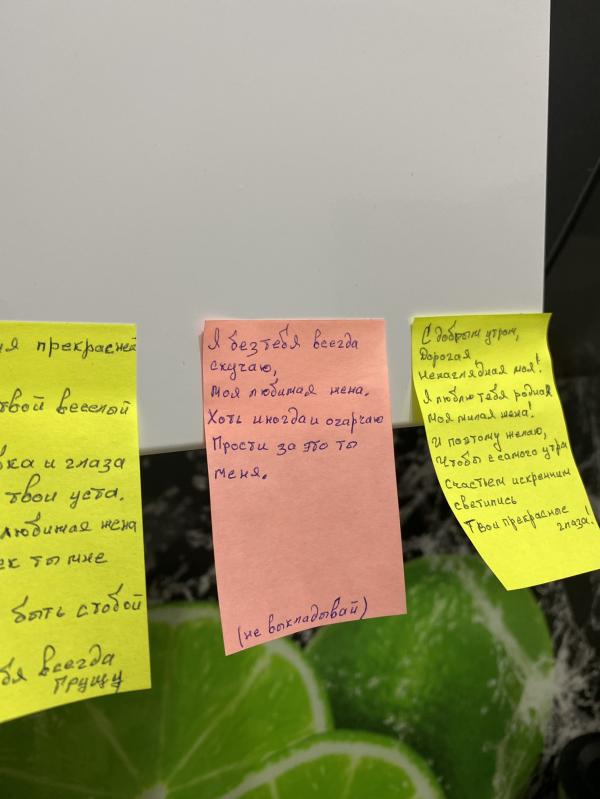 прекрасней
твой веселый
и глаза
твои уста.
любимая жена
ты мне
быть с тобой
всегда
грущу
Я без тебя всегда
скучаю,
Моя любимая жена.
Хоть иногда и огарчаю
Прости за это ты
меня.
(не выкладывай)
С добрым утром,
Дорогая
Ненаглядная моя!
Я люблю тебя родная
Моя милая жена!
И поэтому желаю,
Чтобы с самого утра
Счастьем искренним
светились
Твои прекрасные
глаза!